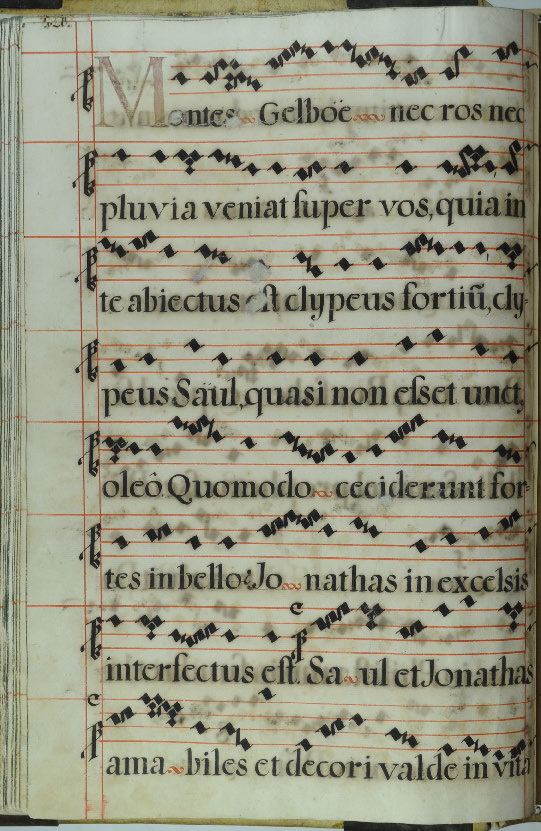 Montes Gelboe nec ros nec
pluvia veniat ſuper vos, quia in
te abiectus eſt clypeus fortiũ, cly-
peus Saul, quasi non eſset unct,
oleô. Quomodo ceciderunt for-
tes in bello? Jo nathas in excelsis
c
interfectus eſt. Sa ul et Jonathas
c
ama biles et decori valde in vita